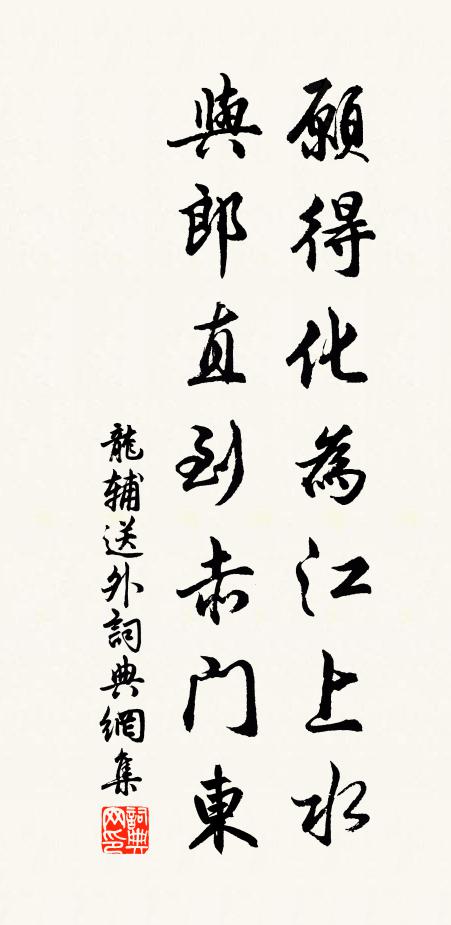 願得化為江上水
與郎直到赤門東
龍輔送外詞典網集
詞典
网印